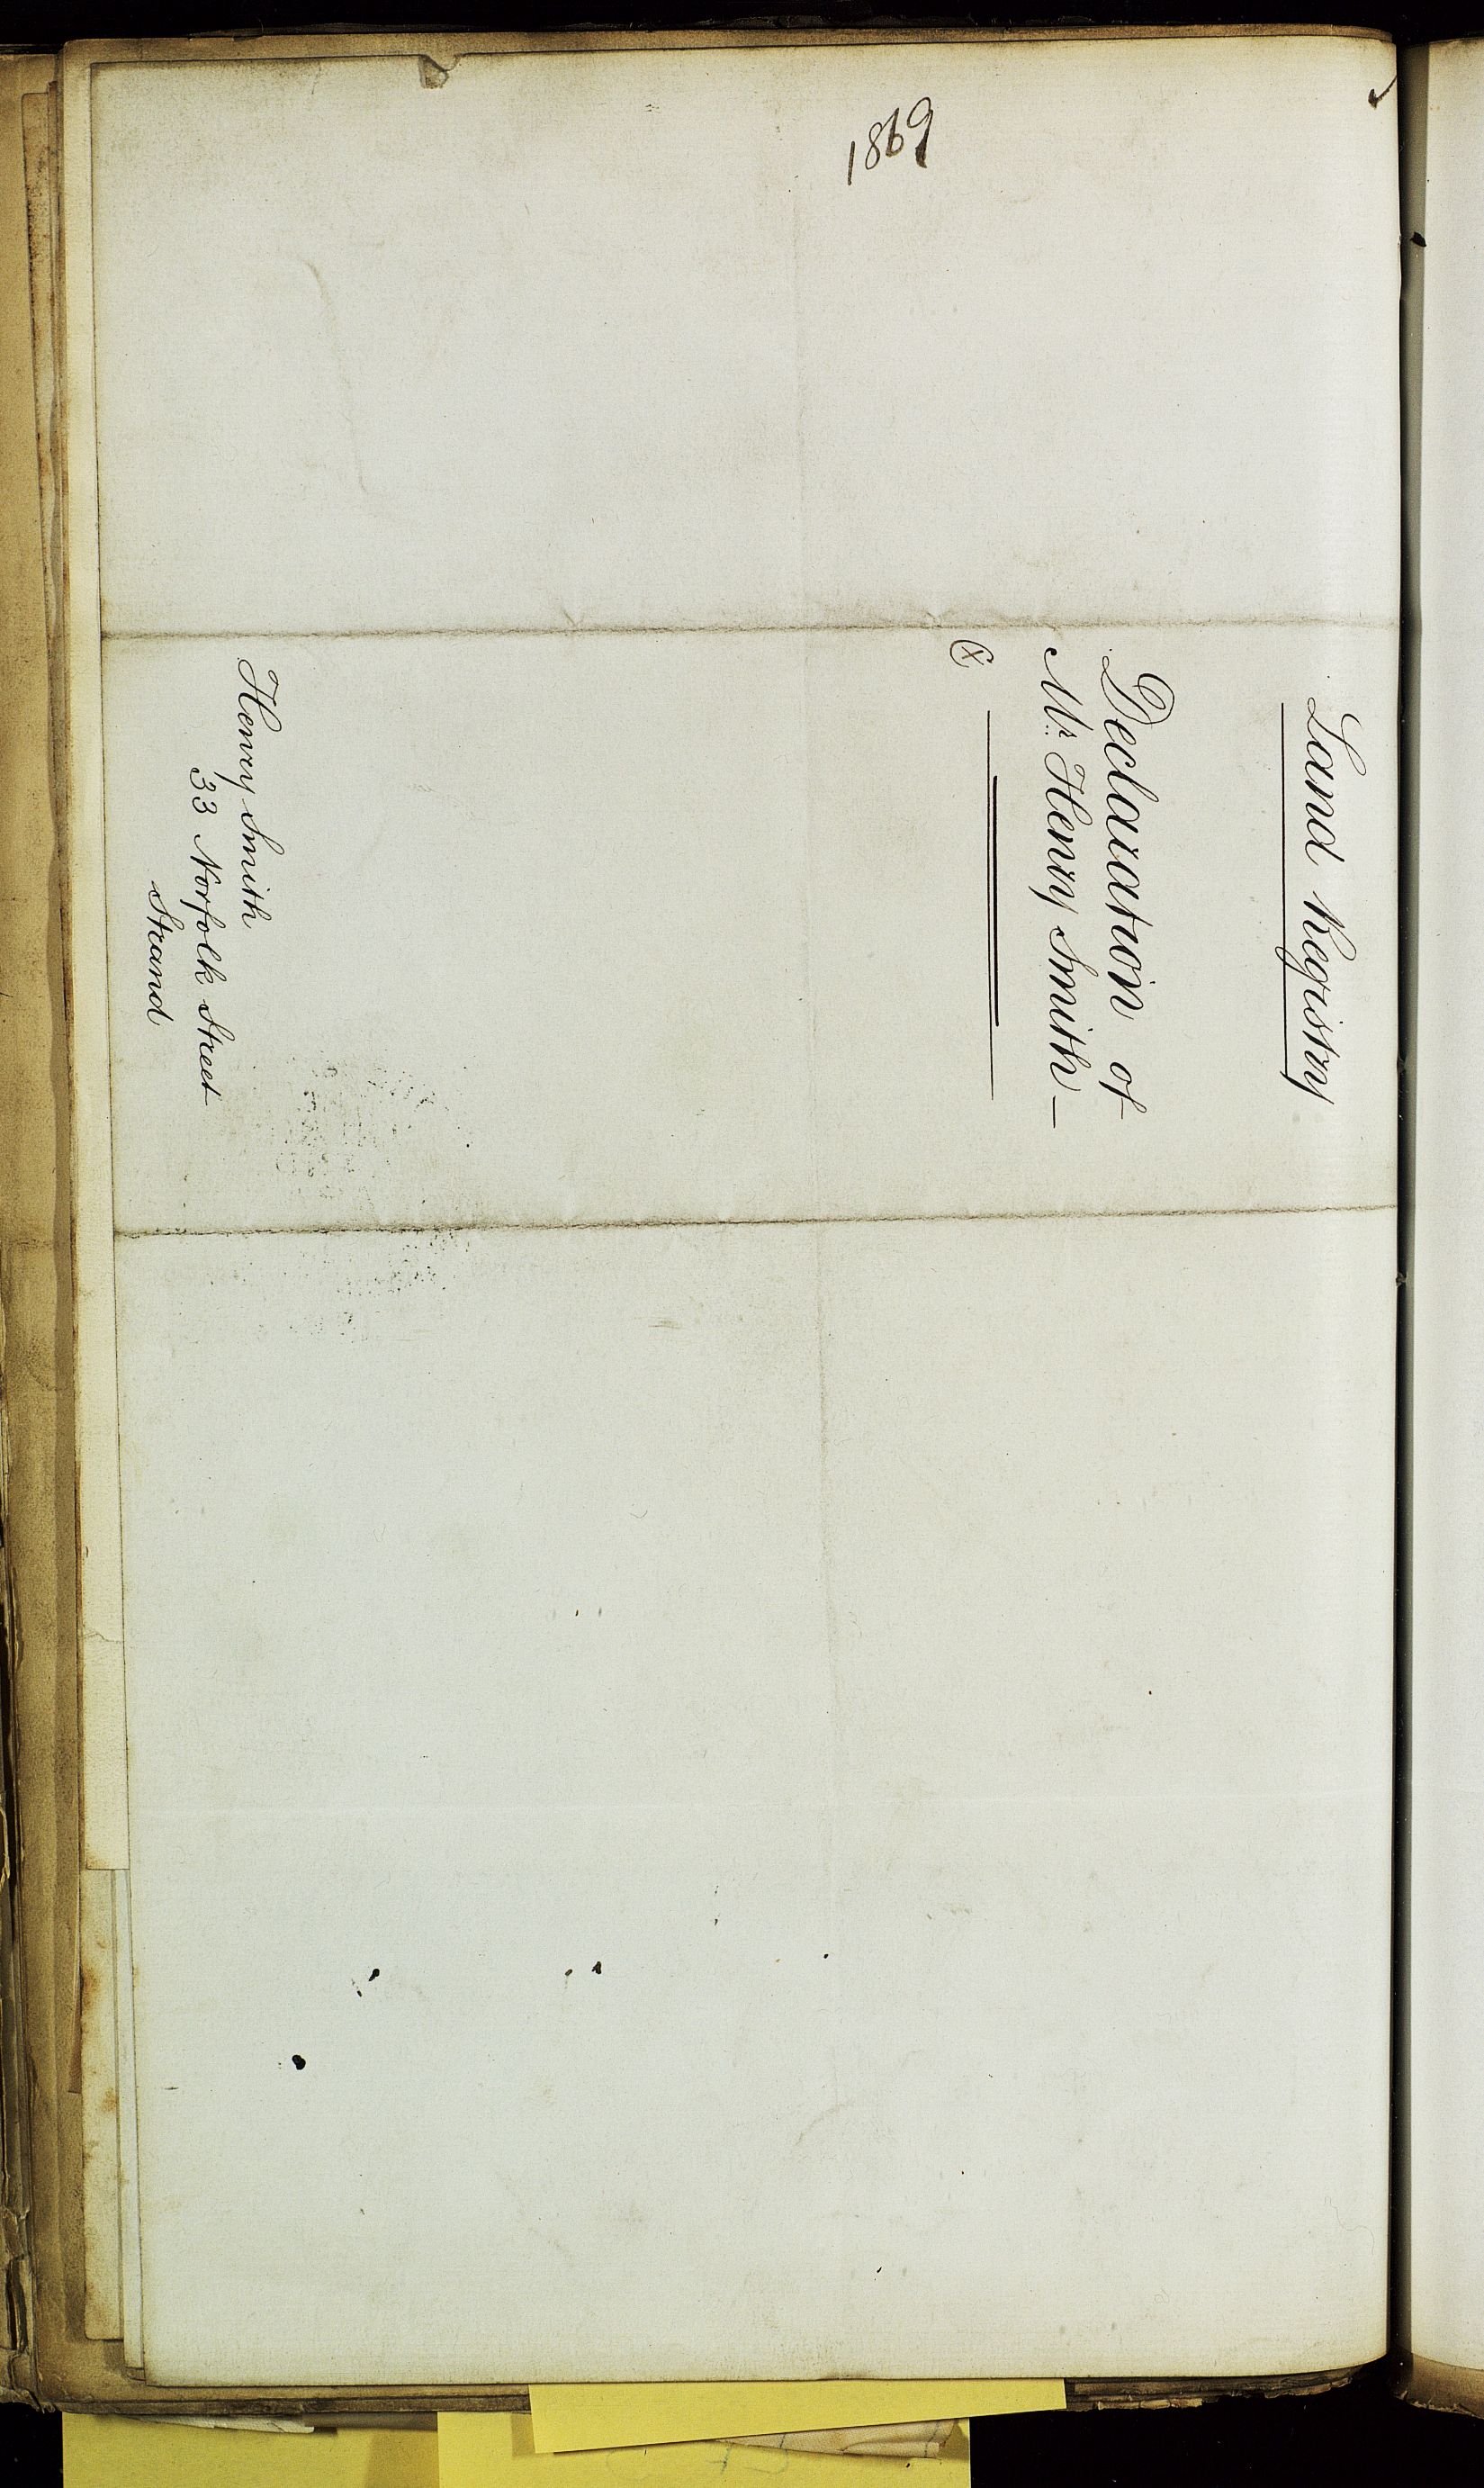 1869
Land Registry
Declaration of
Mr. Henry Smith —
Henry Smith
33 Norfolk Street
Strand